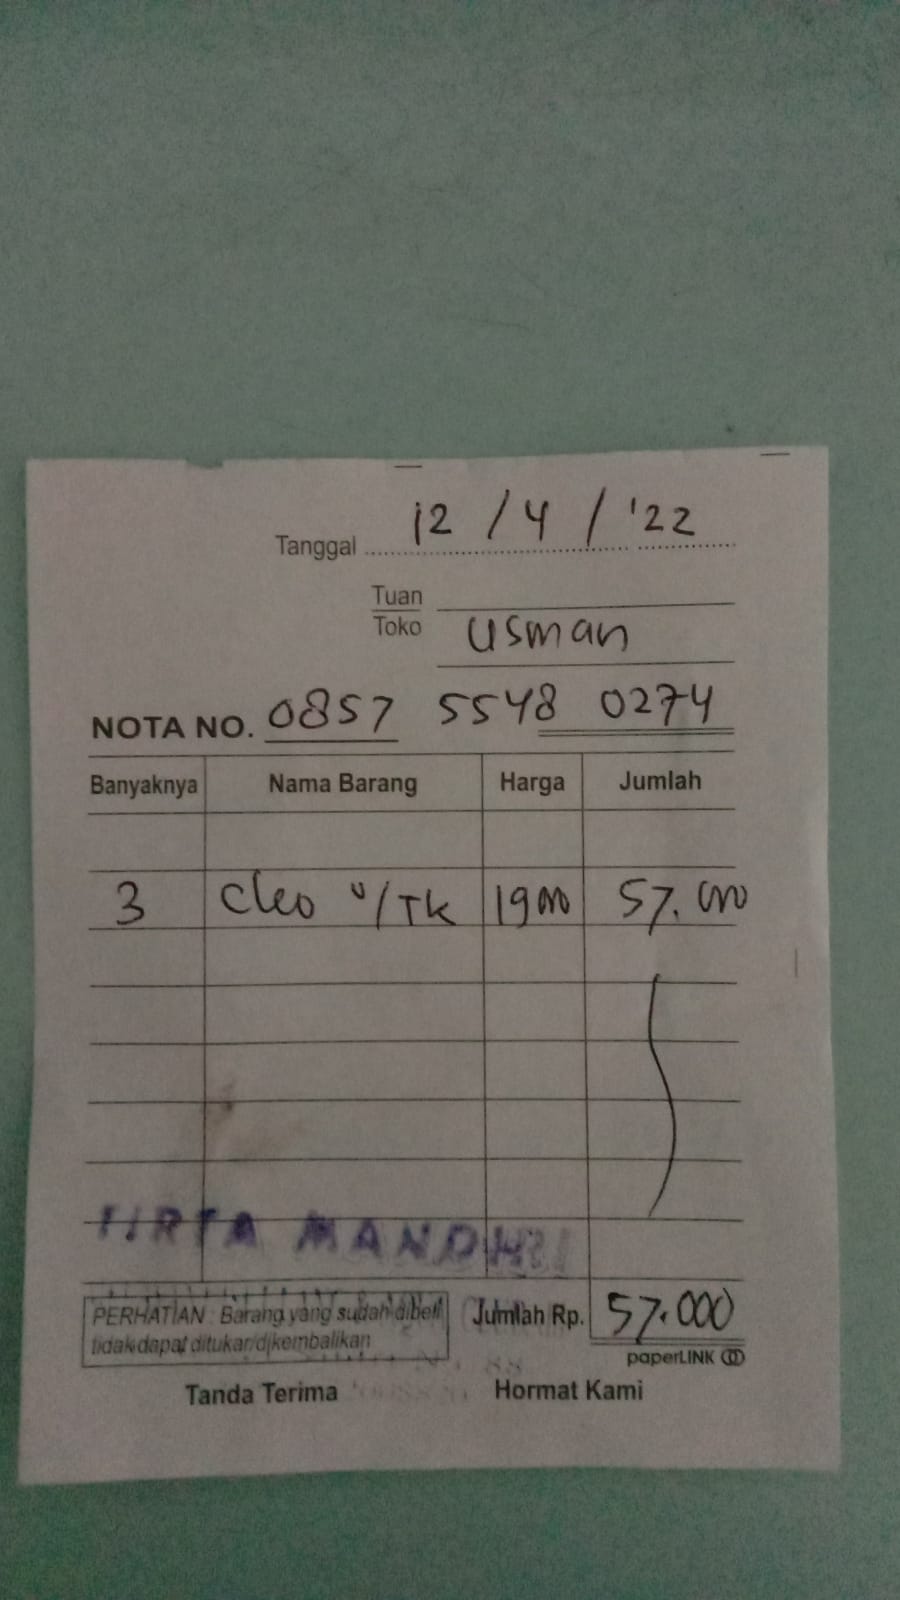 Tanggal 12 / 4 / '22
Tuan
Toko Usman
NOTA NO. 0857 5548 0274
Banyaknya Nama Barang Harga Jumlah
3 Cleo u/TK 19000 57.000
TIRTA MANDIRI
PERHATIAN : Barang yang sudah dibeli
tidak dapat ditukar/dikembalikan
Jumlah Rp. 57.000
paperLINK
Tanda Terima Hormat Kami